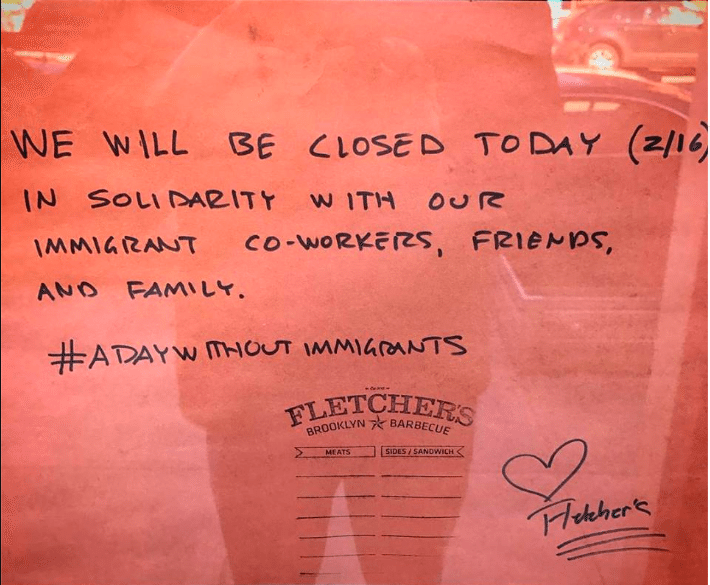 WE WILL BE CLOSED TODAY (2/16)
IN SOLIDARITY WITH OUR
IMMIGRANT CO-WORKERS, FRIENDS,
AND FAMILY.
#ADAYWITHOUT IMMIGRANTS
FLETCHER'S
BROOKLYN BARBECUE
MEATS SIDES / SANDWICH
Fletcher's